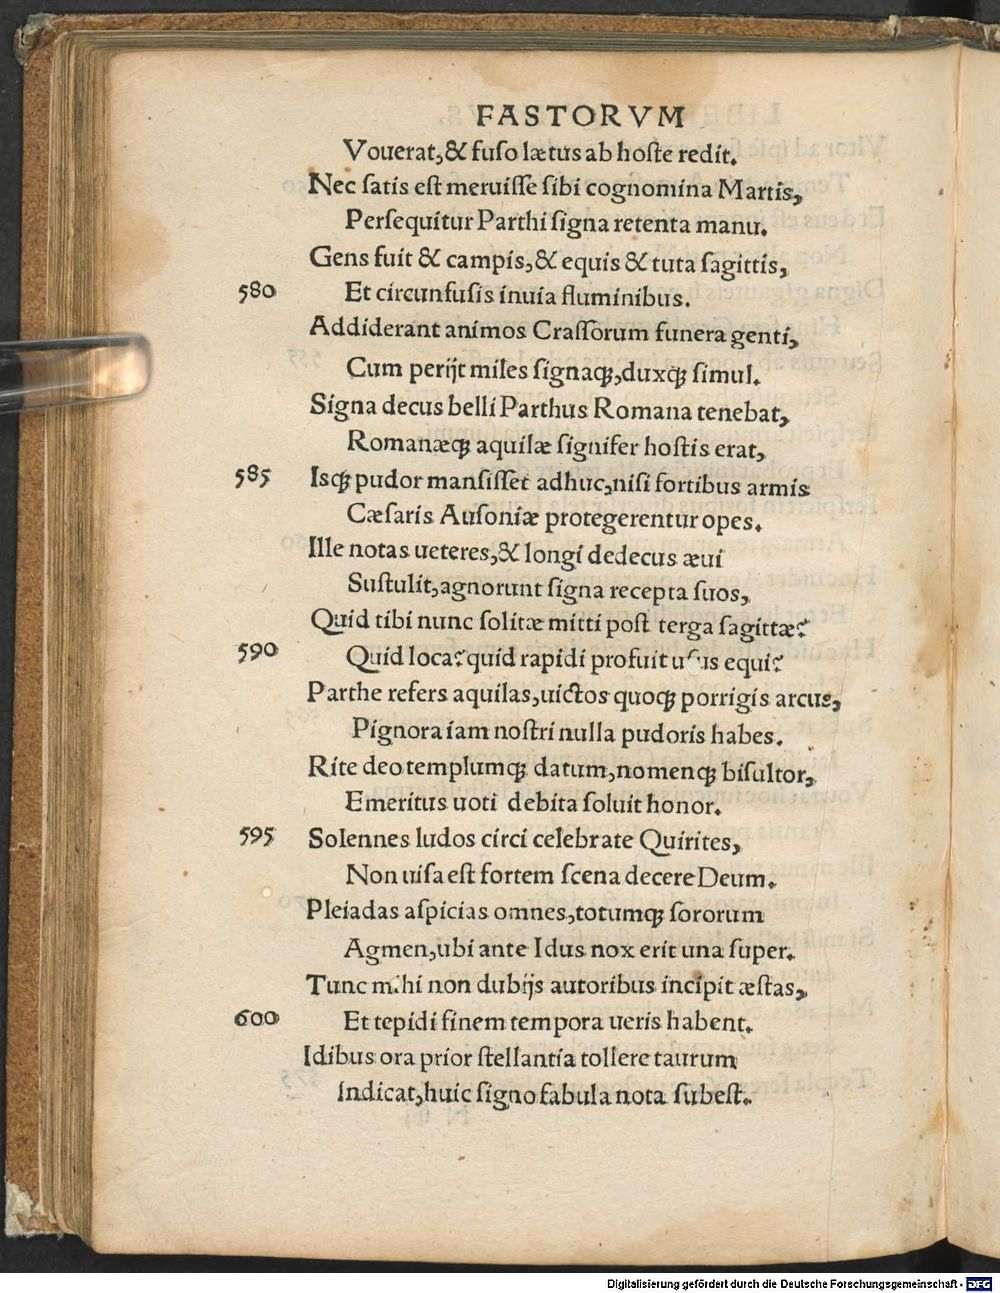 FASTORVM
Vouerat, & fuſo lætus ab hoſte redit.
Nec ſatis eſt meruiſſe ſibi cognomina Martis,
Perſequitur Parthi ſigna retenta manu.
Gens fuit & campis, & equis & tuta ſagittis,
580 Et circunfuſis inuia fluminibus.
Addiderant animos Craſſorum funera genti,
Cum perijt miles ſignaqꝫ, duxqꝫ ſimul.
Signa decus belli Parthus Romana tenebat,
Romanæqꝫ aquilæ ſignifer hoſtis erat,
585 Isqꝫ pudor manſiſſet adhuc, niſi fortibus armis
Cæſaris Auſoniæ protegerentur opes.
Ille notas ueteres, & longi dedecus æui
Suſtulit, agnorunt ſigna recepta ſuos,
Quid tibi nunc ſolitæ mitti poſt terga ſagittæ?
590 Quid loca? quid rapidi profuit uſus equi?
Parthe refers aquilas, uictos quoqꝫ porrigis arcus,
Pignora iam noſtri nulla pudoris habes.
Rite deo templumqꝫ datum, nomenqꝫ biſultor,
Emeritus uoti debita ſoluit honor.
595 Solennes ludos circi celebrate Quirites,
Non uiſa eſt fortem ſcena decere Deum.
Pleiadas aſpicias omnes, totumqꝫ ſororum
Agmen, ubi ante Idus nox erit una ſuper.
Tunc mihi non dubijs autoribus incipit æſtas,
600 Et tepidi finem tempora ueris habent.
Idibus ora prior ſtellantia tollere taurum
Indicat, huic ſigno fabula nota ſubeſt.
Digitalisierung gefördert durch die Deutsche Forschungsgemeinschaft - DFG